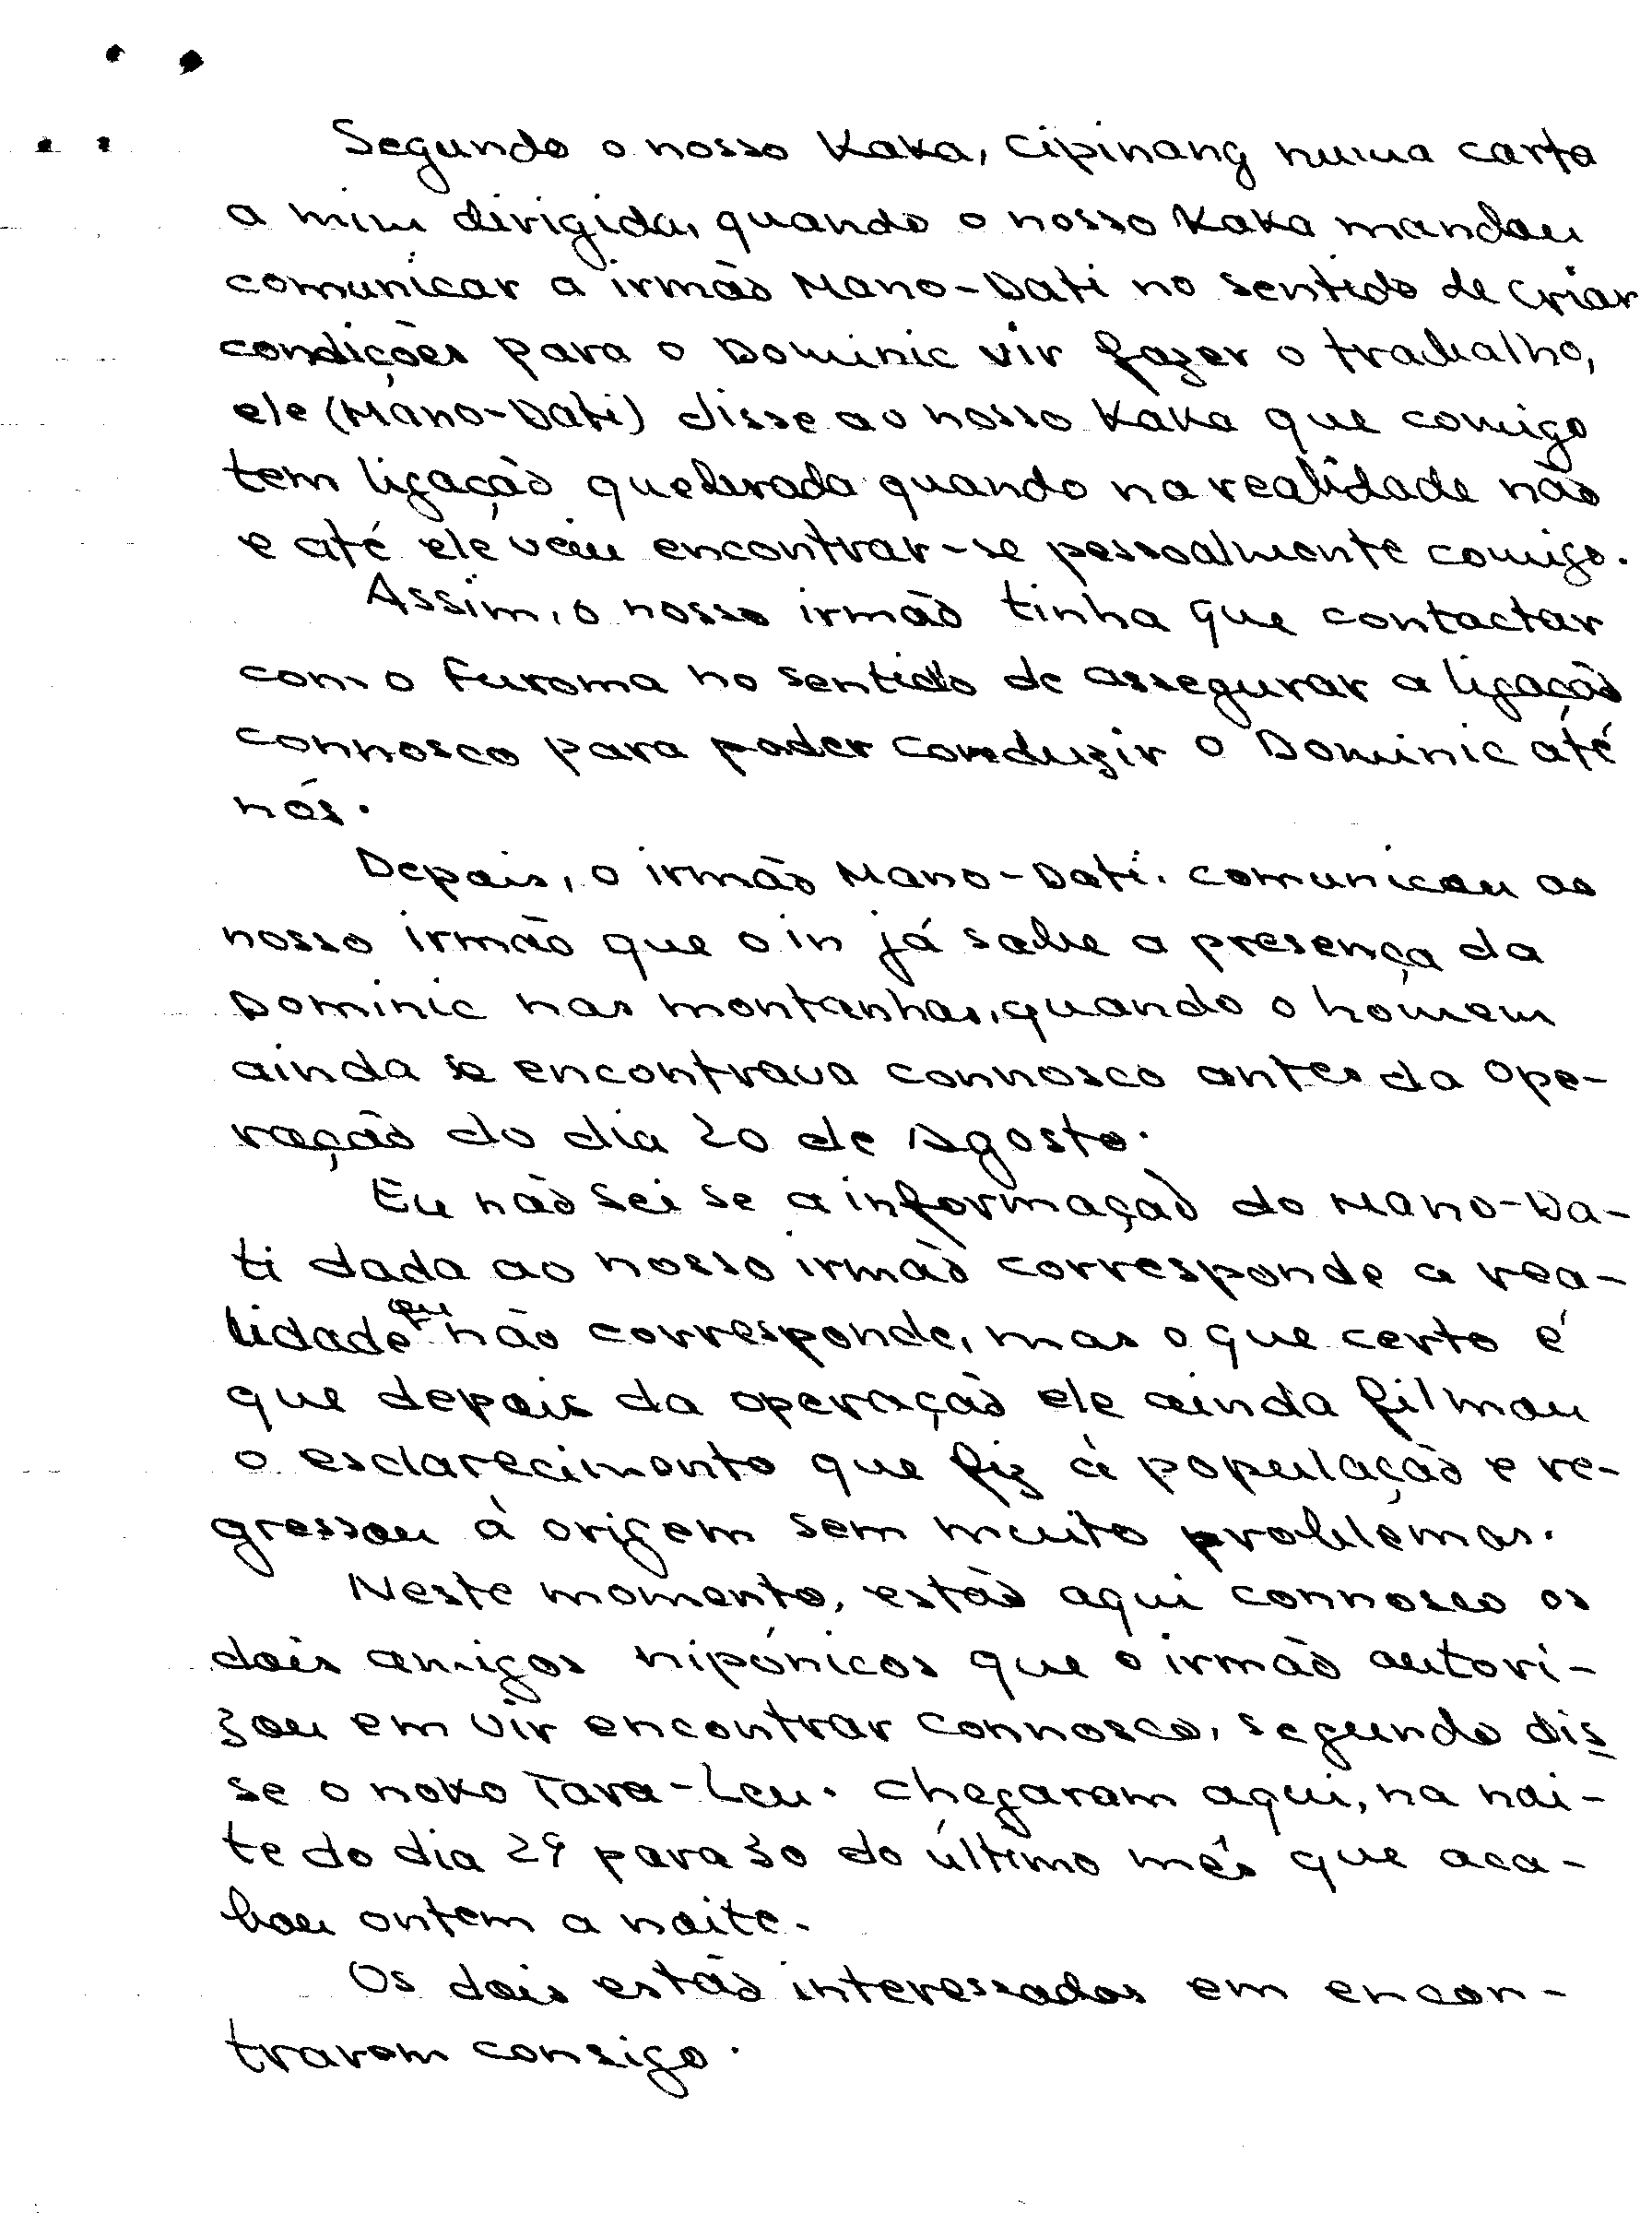 Segundo o nosso Kaka, Cipinang numa carta
a mim dirigida, quando o nosso Kaka mandou
comunicar a irmão Mano-Dati no sentido de criar
condições para o Dominic vir fazer o trabalho,
ele (Mano-Dati) disse ao nosso Kaka que comigo
tem ligação quebrada quando na realidade não
e até ele vem encontrar-se pessoalmente comigo.
Assim, o nosso irmão tinha que contactar
com o Furoma no sentido de assegurar a ligação
connosco para poder conduzir o Dominic até
nós.
Depois, o irmão Mano-Dati. comunicou ao
nosso irmão que o in já sabe a presença da
Dominic nas montanhas, quando o homem
ainda se encontrava connosco antes da ope-
ração do dia 20 de Agosto.
Eu não sei se a informação do Mano-Da-
ti dada ao nosso irmão corresponde a rea-
lidade ou não corresponde, mas o que certo é
que depois da operação ele ainda filmou
o esclarecimento que fiz à população e re-
gressou à origem sem muito problemas.
Neste momento, estão aqui connosco os
dois amigos nipónicos que o irmão autori-
zou em vir encontrar connosco, segundo dis
se o noko Tara-Leu. Chegaram aqui, na noi-
te do dia 29 para 30 do último mês que aca-
bou ontem a noite.
Os dois estão interessados em encon-
trarem consigo.